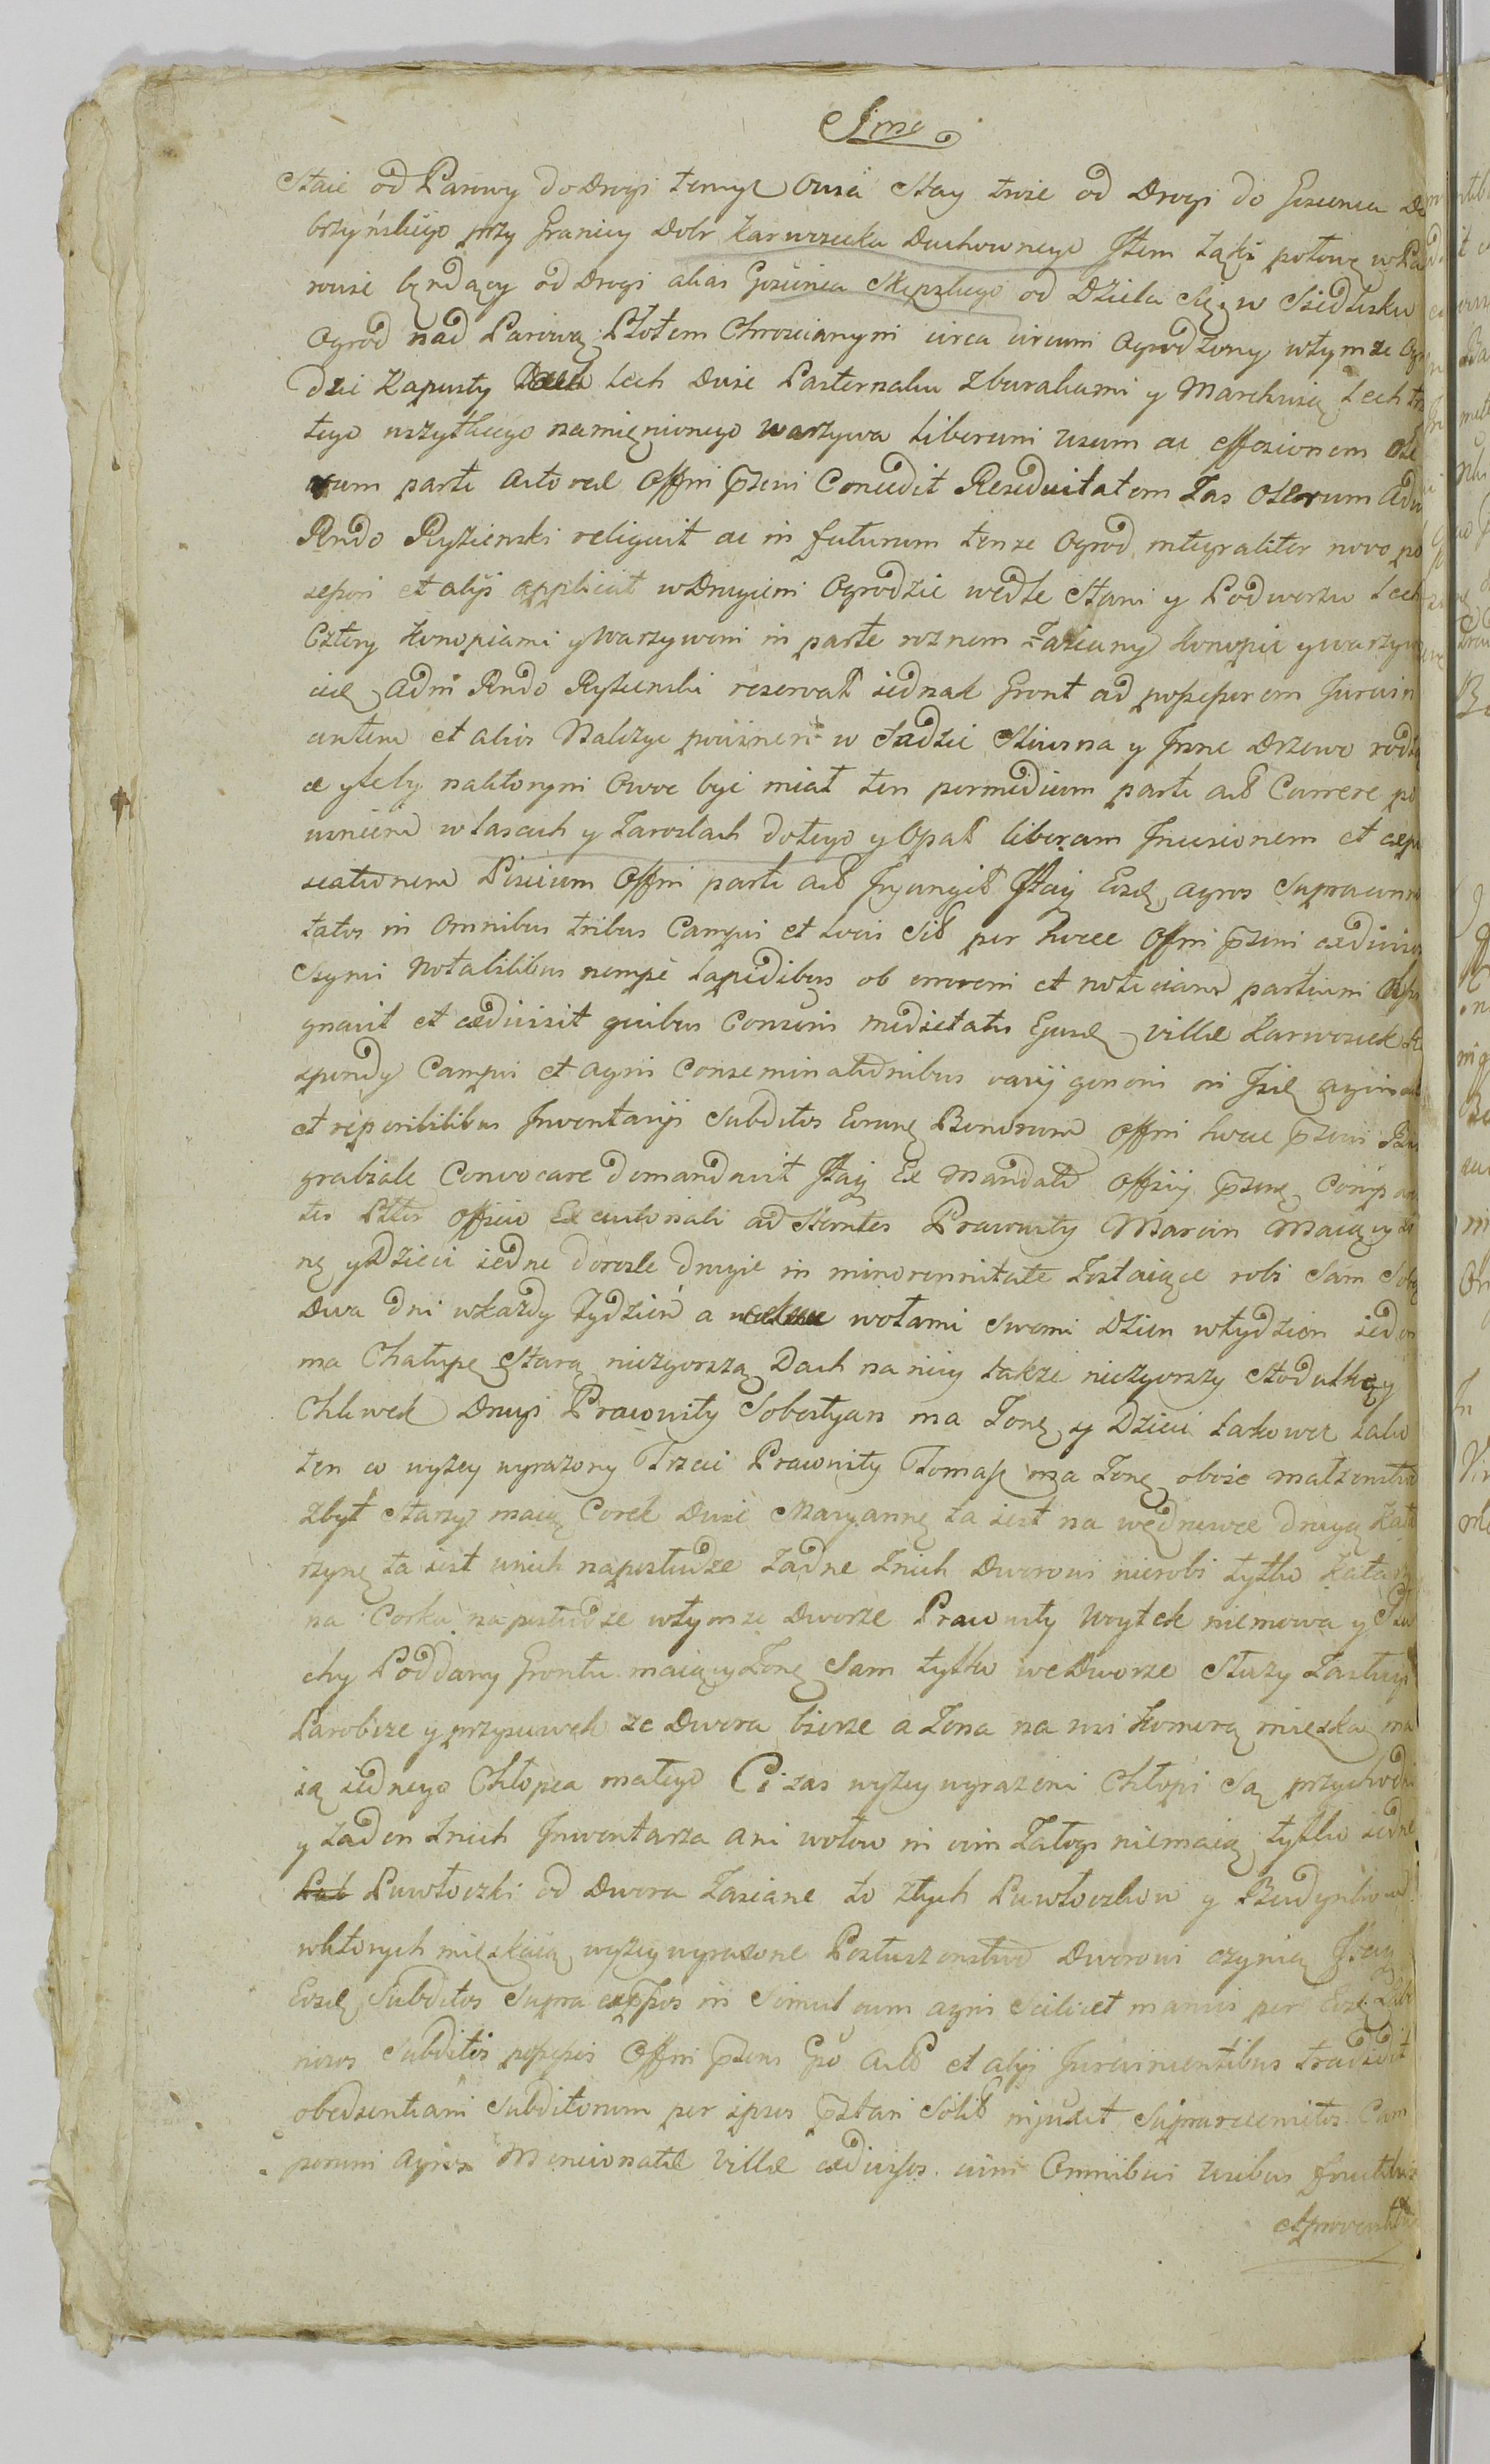 Imo
Staie od Parowy do Drogi temyz Owsa Stay troie od Drogi do Goscinca Do
brzyńskiego przy Granicy Dobr Karwosieka Duchownego Item Łąki połowę w Pa
rowie będący od Drogi alias Goscinca Skępskiego od Dziela Się w Siedlisku
Ogrod nad Parową Płotem Chroscianym circa circum Ogrodzony w tymze Ogro
dzie Kapusty Lech Dwie Pasternaku z burakami y Marchwią Lech
tego wszytkiego namięnionego warzywa liberum usum ac effosionem Ole
rum parti Actoreæ Offm pñni Concedit Residuitatem zas Olerum Adm
Rndo Ryzienski reliquit ac in futurum tenze Ogrod integraliter novo po
sessori et alijs applicuit w Drugiem Ogrodzie wedle Stani y Podworza Lech
Cztery konopiami y Warzywem in parte roznem Zasiany konopie y warzyw
Adm Rndo Ryzienski reservat jednak Gront ad possessorem Iurevin
centem et alios Nalezyc powinen w Sadzie Sliwsna y Inne Drzewo rodz
æ yleby naktorym Owoc byc miał ten per medium parti act Cavrere po
winien w lasach y Zaroslach do tego y Opał liberam Incisionem et
scationem Piscium Offm parti act Injungit Itaq Eosd agros Supra
tatos in Omnibus tribus Campis et locis Sit per hocce Offm pñni ædivisos
Signis Notabilibus nempè lapidibus ob errorem et noticiam partium
gnavit et ædivisit quibus Consenis medietatis Ejusd villæ Karwosiek
Campis et agris Conseminationibus varij generis in Iisd agris
et reperibilibus Inventarijs Subditos Eorund Bonorum Offm hocce pñni
grabiale Convocare demandavit Itaq Ex Mandato Officij pñni
tis Officio Executionali adstantes Prawnity Marcin Maiący
nę y Dzieci jedne dorosle drugie in minorennitate Zostaiące robi Sam Sobą
Dwa dni wkazdy Tydzień a wołami Swemi Dzien wtydzien ieden
ma Chałupę Starą niezgorszą Dach na niey także niezgorszy Stodułkę y
Chliwek Drugi Prawnity Sobestyan ma Zonę y Dzieci takowez iako
ten co wyzey wyrazony Trzeci Prawnity Tomasz ma Zonę oboie małzenstwo
zbyt Starzy maią Corek Dwie Maryannę ta iest na wędrowce drugą Kata
rzynę ta iest unich naposłudze Zadne Znich Dworowi nierobi tylko Katarzy
na Corka na posłudze wtymze Dworze Prawnity Woytek niemowa y Głu
chy Poddany Gruntu maiący Zonę Sam tylko we Dworze Słuzy Zasługi
Parobsze y przysiewek ze Dwora bierze a Zona na wsi komorą mięska ma
ią iednego Chłopca małego Ci zas wyzey wyrazeni Chłopi Są przychodni
y zaden Znich Inwentarza ani wołow ni inn Załogi niemaią tylko iedne
Puwłoczki od Dwora Zasiane to ztych Puwłoczkow y Budynkow
wktorych mięskaią wyzey wyrazone Posłuszenstwo Dworowi czynią Itaq
Eosd Subditos Supra expssos in Simul cum agris Scilicet mansis per Eosd
nios Subditos possessis Offm pñni Act et alijs Iurevincentibus tradidit
obedientiam Subditorum per ipsos pstari Solit injuxit Suprarecensitos Cam
porum Agros Mencionatæ Villæ ædivisos cum Omnibus usibus fructibus
et proventibus